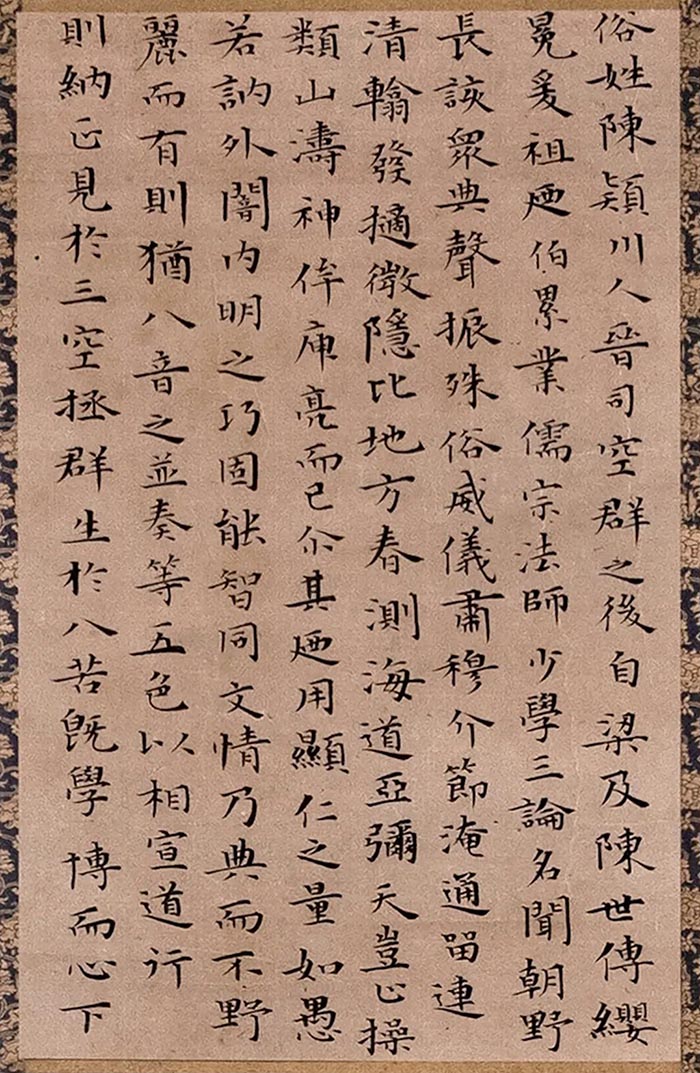 俗姓陳潁川人晉司空群之後自梁及陳世傳纓
冕爰祖迺伯累業儒宗法師少學三論名聞朝野
長該衆典聲振殊俗威儀肅穆介節淹通留連
清翰發擿微隱比地方春測海道亞彌天豈止操
類山濤神侔庾亮而已尒其迺用顯仁之量如愚
若訥外闇内明之巧固能智同文情乃典而不野
麗而有則猶八音之並奏等五色以相宣道行
則納正見於三空拯群生於八苦既學博而心下